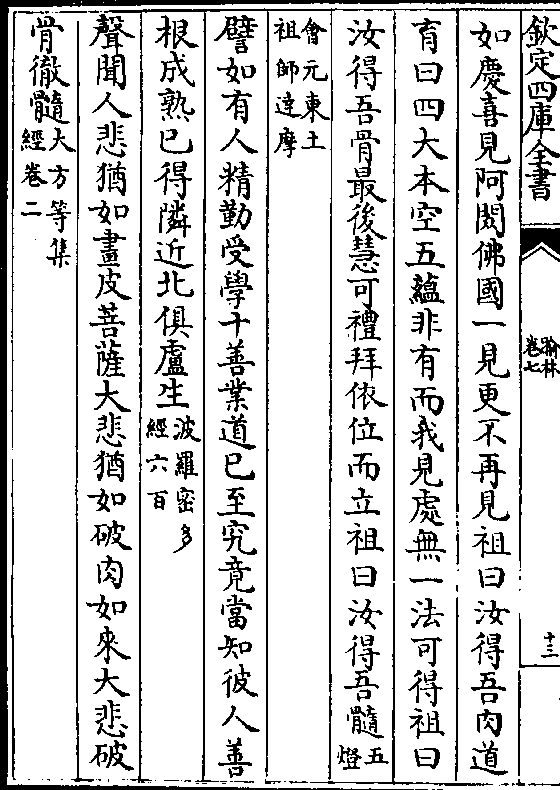 欽定四庫全書
翰林
卷七
十三
如慶喜見阿閦佛國一見更不再見祖曰汝得吾肉道
育曰四大本空五蘊非有而我見處無一法可得祖曰
汝得吾骨最後慧可禮拜依位而立祖曰汝得吾髓五
燈
會元東土
祖師達摩
譬如有人精勤受學十善業道已至究竟當知彼人善
根成熟已得隣近北俱盧生波羅密多
經六百
聲聞人悲猶如畫皮菩薩大悲猶如破肉如來大悲破
骨徹髓大方等集
經卷二